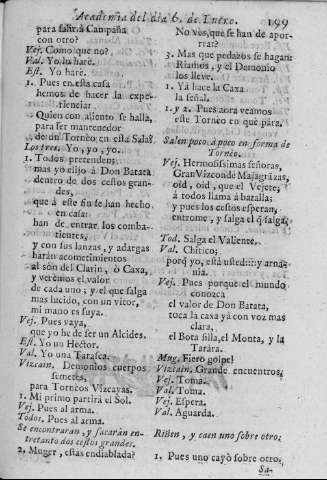 Academia del dia 6. de Enero. 199
para salir à Campaña
con otro?
Vej. Como que no?
Val. Yo lo haré.
Est. Yo haré.
1. Pues en esta casa
hemos de hacer la expe-
rienciar
Quien con aliento se halla,
para ser mantenedor
de un Tornèo en esta Sala?
Los tres. Yo, yo, yo.
1. Todos pretenden;
mas yo elijo à Don Batata
dentro de dos cestos gran-
des,
que à este fin se han hecho
en casa:
han de entrar los comba-
tientes,
y con sus lanzas, y adargas
harán acometimientos
al són del Clarin, ò Caxa,
y verèmos el valor
de cada uno; y el que salga
mas lucido, con un vitor,
mi mano es suya.
Vej. Pues vaya,
que yo he de ser un Alcides.
Est. Yo un Hector.
Val. Yo una Tarasca.
Vizcain. Demonios cuerpos
semetes,
para Tornèos Vizcayas.
1. Mi primo partirá el Sol.
Vej. Pues al arma.
Todos. Pues al arma.
Se encontraràn, y sacaràn en-
tretanto dos cestos grandes.
2. Muger, estàs endiablada?
No vès, que se han de apor-
rear?
3. Mas que pedazos se hagan:
Riamos, y el Demonio
los lleve.
1. Ya hace la Caxa
la señal.
1. y 2. Pues aora veamos
este Tornèo en què pára.
Salen poco à poco en forma de
Tornèo.
Vej. Hermosissimas señoras,
Gran Vizconde Majagrazas,
oíd, oíd, que el Vejete,
à todos llama à batalla;
y pues los cestos esperan,
entrome, y salga el q̃ salga.
Tod. Salga el Valiente.
Val. Chitico;
porq̃ yo, está usted::: y arna-
nia.
Vej. Pues porque el mundo
conozca
el valor de Don Batata,
toca la caxa yá con voz mas
clara,
el Bota silla, el Monta, y la
Tarára.
Mug. Fiero golpe!
Vizcain. Grande encuentro!
Vej. Toma.
Val. Toma.
Vej. Espera.
Val. Aguarda.
Riñen, y caen uno sobre otro.
1. Pues uno cayò sobre otro,
Sa-